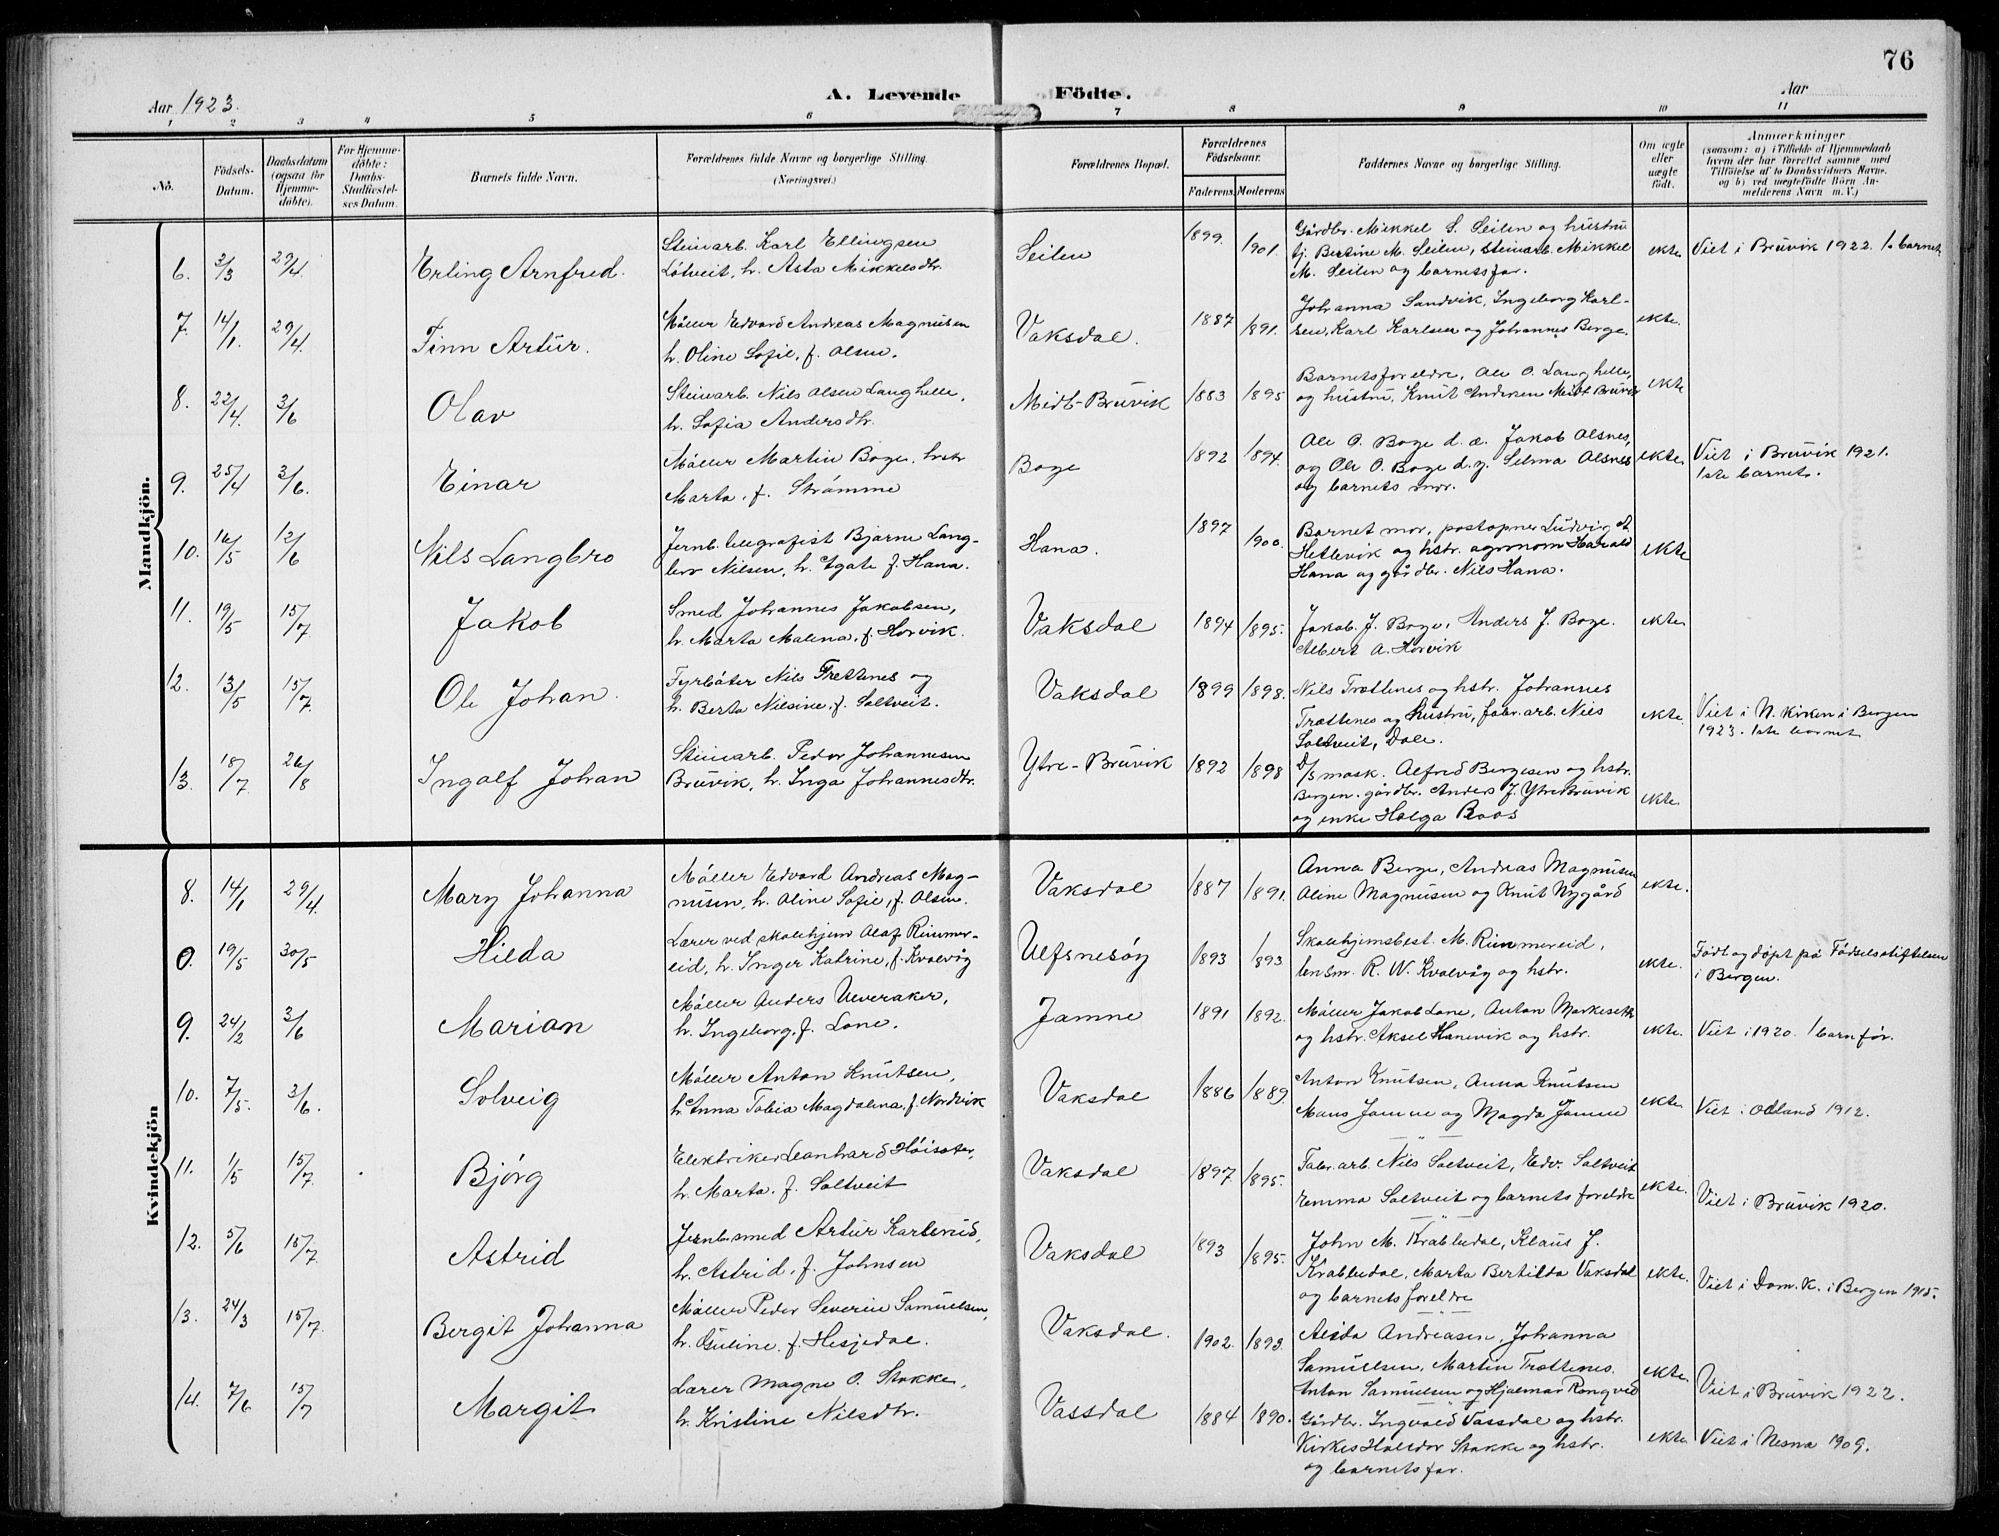 76
Aar 1923.
A. Levende Födte.
Aar
1 2 3 4 5 6 7 8 9 10 11
No.
Födsels-Datum.
Daabsdatum (ogsaa för Hjemme-döbte).
For Hjemme-döbte: Daabs-Stadfæstel-ses Datum.
Barnets fulde Navn.
Forældrenes fulde Navne og borgerlige Stilling. (Næringsvei.)
Forældrenes Bopæl.
Forældrenes Födselsaar.
Faderens. Moderens.
Faddernes Navne og borgerlige Stilling.
Om ægte eller uægte födt.
Anmærkninger
(saasom: a) i Tilfælde af Hjemmedaab
hvem der har forrettet samme med
Tilföielse af to Daabsvidners Navne.
og b) ved uægtefödte Börn An-
melderens Navn m. V.)
Mandkjön.
6. 3/3 29/4 Erling Arnfred.
Steinarb. Karl Ellingsen
Løtveit, h. Asta Mikkelsdtr.
Seilen 1899. 1901.
Gårdbr. Mikkel S. Seilen og hustru
tj. Bertine M. Seilen, steinarb. Mikkel
M. Seilen og barnets far.
ekte Viet i Bruvik 1922. 1. barnet
7. 14/1. 29/4 Finn Artur.
Møller Edvard Andreas Magnusen
h. Oline Sofie, f. Olsen.
Vaksdal. 1887 1891.
Johanna Sandvik, Ingeborg Karl-
sen, Karl Karlsen og Johannes Berge.
ekte.
8. 22/4. 3/6 Olav
Steinarb. Nils Olsen Langhelle,
h. Sofia Andersdtr.
Midt-Bruvik 1883 1895
Barnets foreldre, Ole O. Langhelle,
og hustru, Knut Andersen Midt Bruvik
ekte
9. 25/4 3/6. Einar
Møller Martin Boge, hstr
Marta, f. Strømme
Boge 1892 1894.
Ole O. Boge d. æ. Jakob Olsnes,
og Ole O. Boge d. y. Selma Olsnes
og barnets mor.
ekte Viet i Bruvik 1921.
1ste barnet.
10. 16/5 12/6 Nils Langbro
Jernb. telegrafist Bjarne Lang-
bro Nilsen, h. Agate f. Hana.
Hana. 1897 1900.
Barnet mor, postopner Ludvig
Hetlevik og hstr. agronom Harald
Hana og gårdbr. Nils Hana.
ekte
11. 19/5 15/7 Jakob
Smed Johannes Jakobsen,
h. Marta Malena, f. Horvik.
Vaksdal 1894 1895.
Jakob. J. Boge, Anders J. Boge.
Albert A. Horvik
ekte
12. 13/5 15/7. Ole Johan.
Fyrbøter Nils Trettenes og
h. Berta Nilsine, f. Saltveit.
Vaksdal 1899 1898.
Nils Trættenes og hstr. Johannes
Trættenes og hustru, fabr. arb. Nils
Saltveit, Dale.
ekte. Viet i N. Kirken i Bergen
1923. 1ste barnet
13. 18/7 26/8 Ingolf Johan
Steinarb. Peder Johannesen
Bruvik, h. Inga Johannesdtr.
Ytre-Bruvik 1892 1898
D/S mask. Alfred Bergesen og hstr.
Bergen, gårdbr. Anders J. Ytrebruvik
og enke Helga Boos
ekte.
Kvindekjön
8. 14/1 29/4. Mary Johanna
Møller Edvard Andreas Mag-
nusen, h. Oline Sofie, f. Olsen.
Vaksdal 1887 1891.
Anna Berge, Andreas Magnusen
Oline Magnusen og Knut Nygård
ekte.
0. 19/5 30/5 Hilda
Lærer ved skolehjem Olaf Rimmer-
eid, h. Inger Katrine, f. Kvalvåg
Ulfsnesøy 1893 1893
Skolehjemsbest. M. Rimmereid,
lensm. R. W. Kvalvåg og hstr.
ekte. Født og døpt på Fødselsstiftelsen
i Bergen.
9. 24/2 3/6 Marian
Møller Anders Ulveraker,
h. Ingeborg, f. Lone.
Jamne 1891 1892.
Møller Jakob Lone, Anton Markeseth
og hstr. Aksel Hanevik og hstr.
ekte. Viet i 1920. 1 barn før.
10. 7/5. 3/6. Solveig
Møller Anton Knutsen,
h. Anna Tobia Magdalena, f. Nordvik
Vaksdal 1886 1889.
Anton Knutsen, Anna Knutsen
Mans Jamne og Magda Jamne
ekte. Viet i Odland 1912.
11. 1/5 15/7. Bjørg
Elektriker Leonhard Høisæter,
h. Marta, f. Saltveit
Vaksdal 1897 1895.
Fabr. arb. Nils Saltveit, Edv. Saltveit
Emma Saltveit og barnets foreldre
ekte. Viet i Bruvik 1920.
12. 5/6 15/7 Astrid
Jernb. smed Artur Karlerud,
h. Astrid, f. Johnsen
Vaksdal 1893 1895.
John M. Krabbedal, Klaus J.
Krabbedal, Marta Bertilda Vaksdal
og barnets foreldre
ekte. Viet i Dom. K. i Bergen 1915.
13. 24/3 15/7. Bergit Johanna
Møller Peder Severin Samuelsen,
h. Guline, f. Hesjedal.
Vaksdal. 1902. 1893.
Alida Andreasen, Johanna
Samuelsen, Martin Trættenes.
Anton Samuelsen og Hjalmar Ronqved
ekte. Viet i Bruvik 1922.
14. 7/6 15/7 Margit
Lærer Magne O. Stakke,
h. Kristine Nilsdtr.
Vassdal 1884 1890.
Gårdbr. Ingvald Vassdal og hstr.
Kirkes Halldor Stakke og hstr.
og barnets far.
ekte. Viet i Nesna 1909.